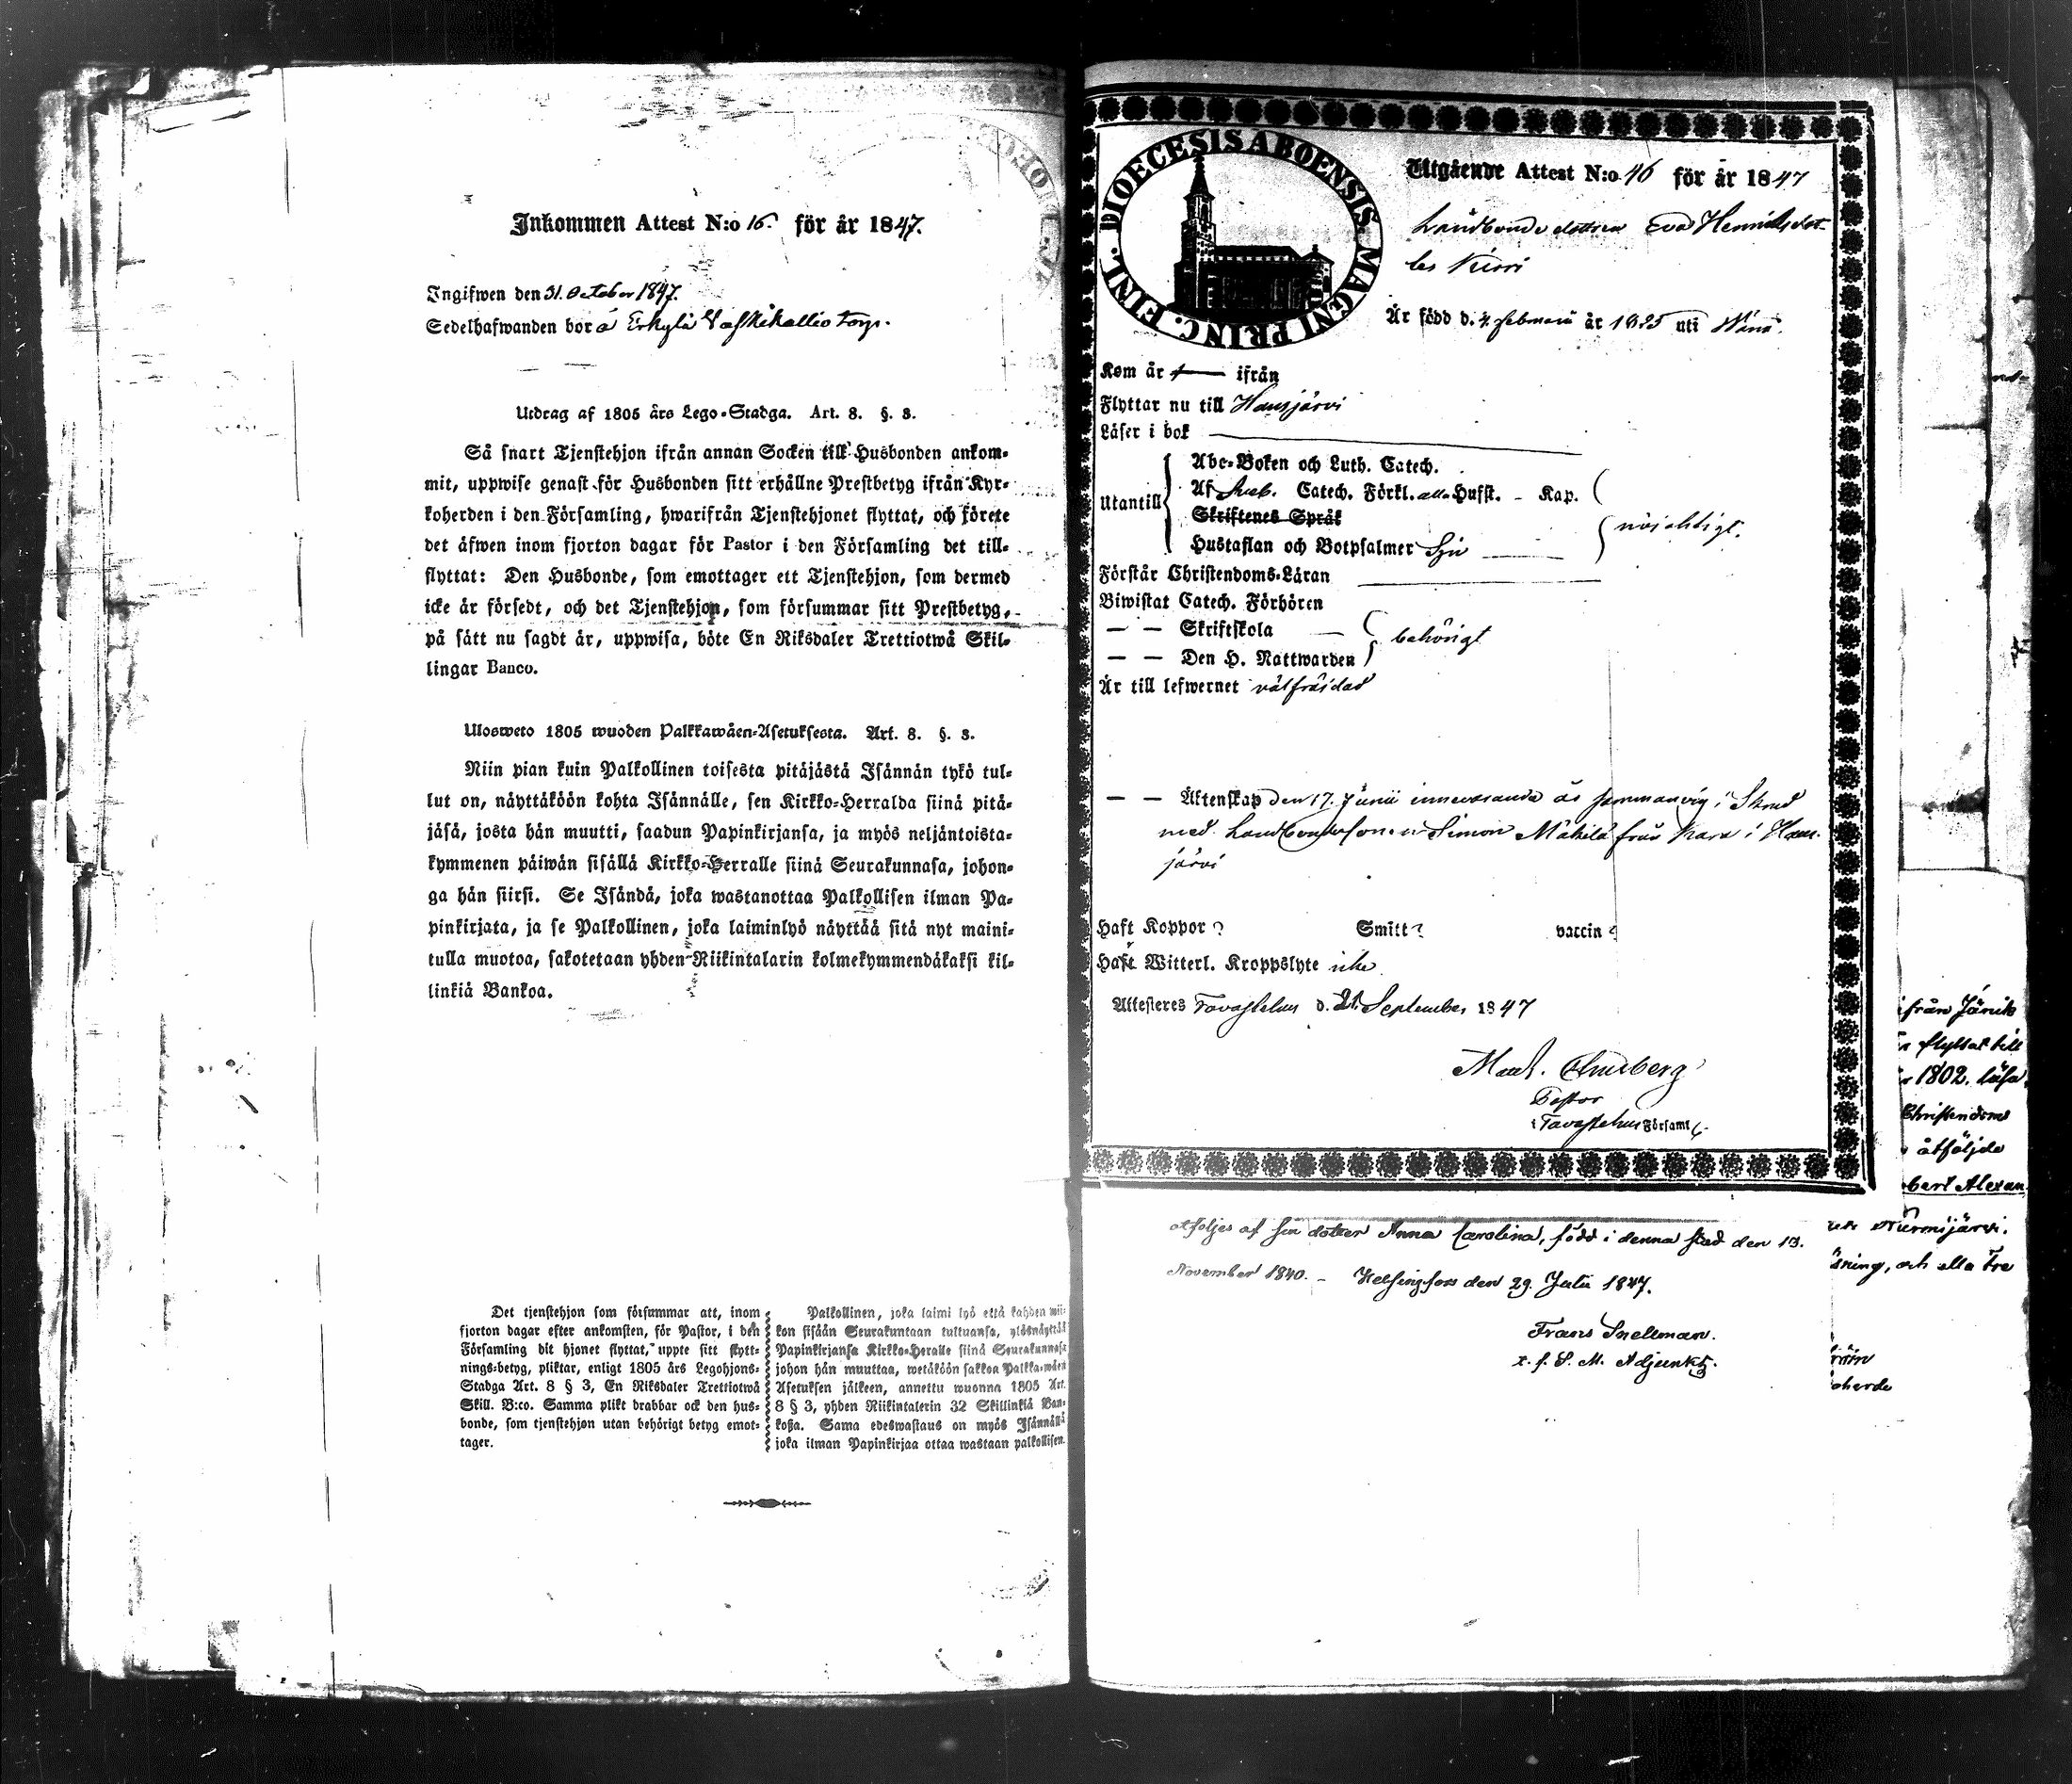 Inkommen Attest N:o 16. för år 1847.
Ingifwen den 31. October 1847.
Sedelhafwanden bor å Erkylä Vaskikallio torp.
Utdrag af 1805 års Lego-Stadga. Art. 8. §. 3.
Så snart Tjenstehjon ifrån annan Socken till Husbonden ankom-
mit, uppwise genast för Husbonden sitt erhållne Prestbetyg ifrån Kyr-
koherden i den Församling, hwarifrån Tjenstehjonet flyttat, och förete
det äfwen inom fjorton dagar för Pastor i den Församling det till-
flyttat: Den Husbonde, som emottager ett Tjenstehjon, som dermed
icke är försedt, och det Tjenstehjon, som försummar sitt Prestbetyg,
på sätt nu sagdt är, uppwisa, böte En Riksdaler Trettiotwå Skil-
lingar Banco.
Ulosweto 1805 wuoden Palkkawäen-Asetuksesta. Art. 8. §. 3.
Niin pian kuin Palkollinen toisesta pitäjästä Isännän tykö tul-
lut on, näyttäköön kohta Isännälle, sen Kirkko-Herralda siinä pitä-
jäsä, josta hän muutti, saadun Papinkirjansa, ja myös neljäntoista-
kymmenen päiwän sisällä Kirkko-Herralle siinä Seurakunnasa, johon-
ga hän siirsi. Se Isändä, joka wastanottaa Palkollisen ilman Pa-
pinkirjata, ja se Palkollinen, joka laiminlyö näyttää sitä nyt maini-
tulla muotoa, sakotetaan yhden Riikintalarin kolmekymmendäkaksi kil-
linkiä Bankoa.
Det tjenstehjon som försummar att, inom
fjorton dagar efter ankomsten, för Pastor, i den
Församling dit hjonet flyttat, uppte sitt flytt-
nings-betyg, pliktar, enligt 1805 års Legohjons-
Stadga Art. 8 § 3, En Riksdaler Trettiotwå
Skill. B:co. Samma plikt drabbar ock den hus-
bonde, som tjenstehjon utan behörigt betyg emot-
tager.
Palkollinen, joka laimi lyö että kahden wii-
kon sisään Seurakuntaan tultuansa, ylösnäyttää
Papinkirjansa Kirkko-Heralle siinä Seurakunnasa
johon hän muuttaa, wetäköön sakkoa Palkka-wäen
Asetuksen jälkeen, annettu wuonna 1805 Art.
8 § 3, yhden Riikintalerin 32 Skillinkiä Ban-
koßa. Sama edeswastaus on myös Isännällä
joka ilman Papinkirjaa ottaa wastaan palkollisen.
DIOECESIS ABOENSIS. MAGNI PRINC. FINL.
Utgående Attest N:o 46 för år 1847
Landbonde dottren Eva Henriksdot-
ter
Är född d. 4 Februarii år 1825 uti Wånå.
Kom år — ifrån
Flyttar nu till Hausjärvi
Läser i bok
Utantill
Abc-Boken och Luth. Catech.
Af Sveb. Catech. Förkl. alla Husst. - Kap.
Skriftenes Språk
Hustaflan och Botpsalmer Sju
nöjaktigt.
Förstår Christendoms-Läran
Biwistat Catech. Förhören
— — Skriftskola
— — Den H. Nattwarden
behörigt
Är till lefwernet välfräjdad
— — Äktenskap den 17. Junii innevarande år sammanvigd
med Landbondesonen Simon Mäkilä från Kara i Haus-
järvi
Haft Koppor ? Smitt ? vaccin ?
Haft Witterl. Kroppslyte icke
Attesteres Tavastehus d. 21 September 1847
Pastor
i Tavastehus Församl.
åtföljes af sin dotter Anna Carolina, född i denna stad den 13.
November 1840. - Helsingfors den 29. Julii 1847.
Frans Snellman.
t. f. S. M. Adjunkt.
från
flyttat till
1802. läsa
Christendoms
åtföljde
bert Alexan
Nurmijärvi.
sning, och alla
oherde